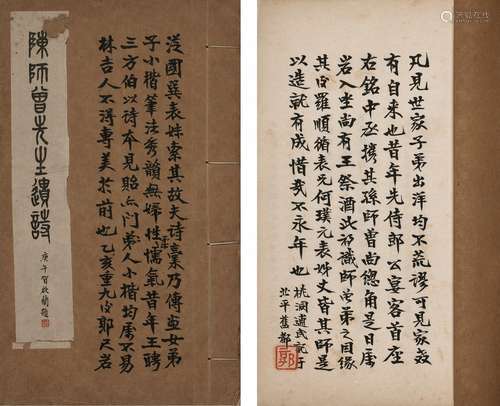 陳師曾先生遺詩
庚午賀啟蘭題
從國巽表妹索其故夫詩稾乃傳畫女弟
子小楷筆法秀韻無婦性懦氣昔年王聘
三方伯以詩本見貽亦門弟人小楷均屬不易
林吉人不得專美於前也乙亥重九後郭尺岩
凡見世家子弟出洋均不荒謬可見家教
有自来也昔年先侍郎公宴客首座
右銘中丞攜其孫師曾尚總角是日屬
岩入坐尚有王祭酒此初識師曾弟之因緣
其後羅順循表兄何璞元表姊丈皆其師是
以造就有成惜哉不永年也
桃洞遺民記于
北平舊都
郭